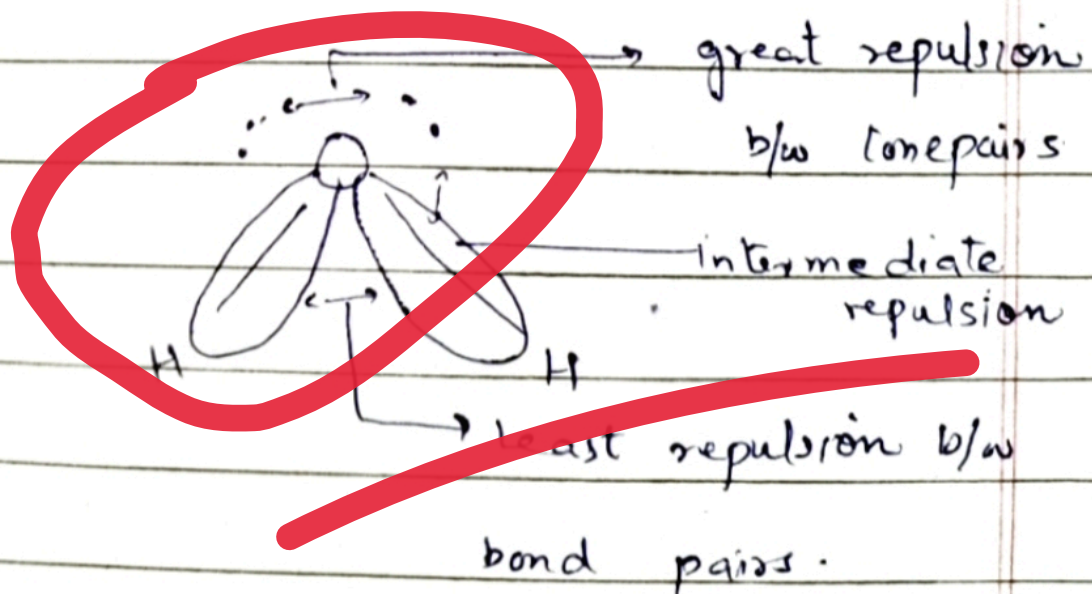 great repulsion
b/w lonepairs
intermediate
repulsion
H
H
least repulsion b/w
bond pairs.